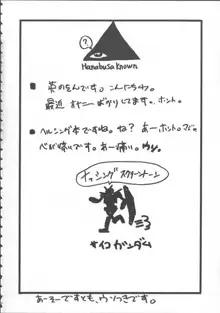 ?
Hanabusa Known
■ 草のなんです。こんにちわ。
最近 ばかりしてます。ホント。
■ ヘルシング本ですね。ね？ あー、ホント。マジ。
が痛いです。あー痛い。ウソ。
ナッシングスクリーントーン
サイコガンダム
あーそーですとも、ウソつきです。